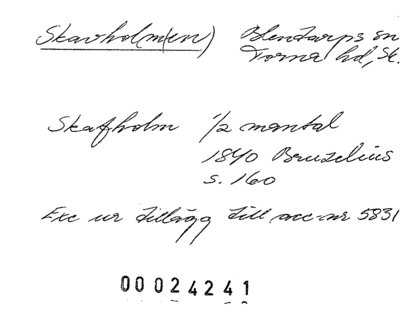 Skarholm(en) Blentarps sn
Torna hd, Sk.
Skafholm 1/2 mantal
1840 Bruzelius
s. 160
Exc ur tillägg till acc-nr 5831
00024241